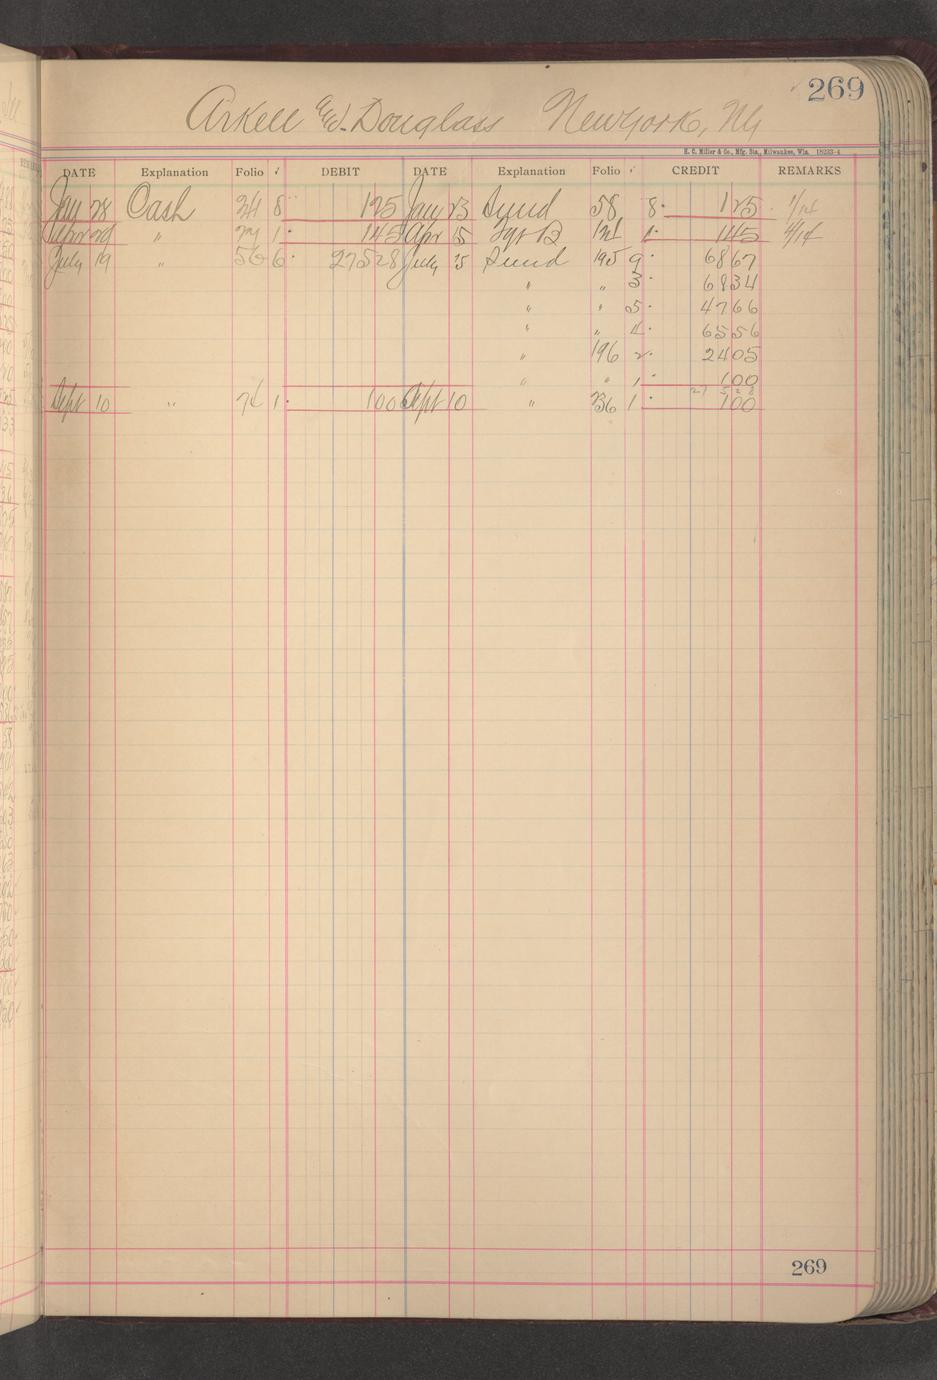 269
Arkell & Douglass New York, Ny
H. C. Miller & Co., Mfg. Sta., Milwaukee, Wis. 18233-4
DATE Explanation Folio ✓ DEBIT DATE Explanation Folio ✓ CREDIT REMARKS
Jany 28 Cash 34 8 125 Jany 23 Sund 58 8 125 1/14
Apr 29 " 1 145 Apr 15 121 1 145 4/14
July 19 " 56 6 27528 July 15 Sund 195 9 6867
" " 3 6934
" " 5 4766
" " 4 6556
" 196 2 2405
" " 1 100
27528
Sept 10 " 76 1 100 Sept 10 " 236 1 100
269